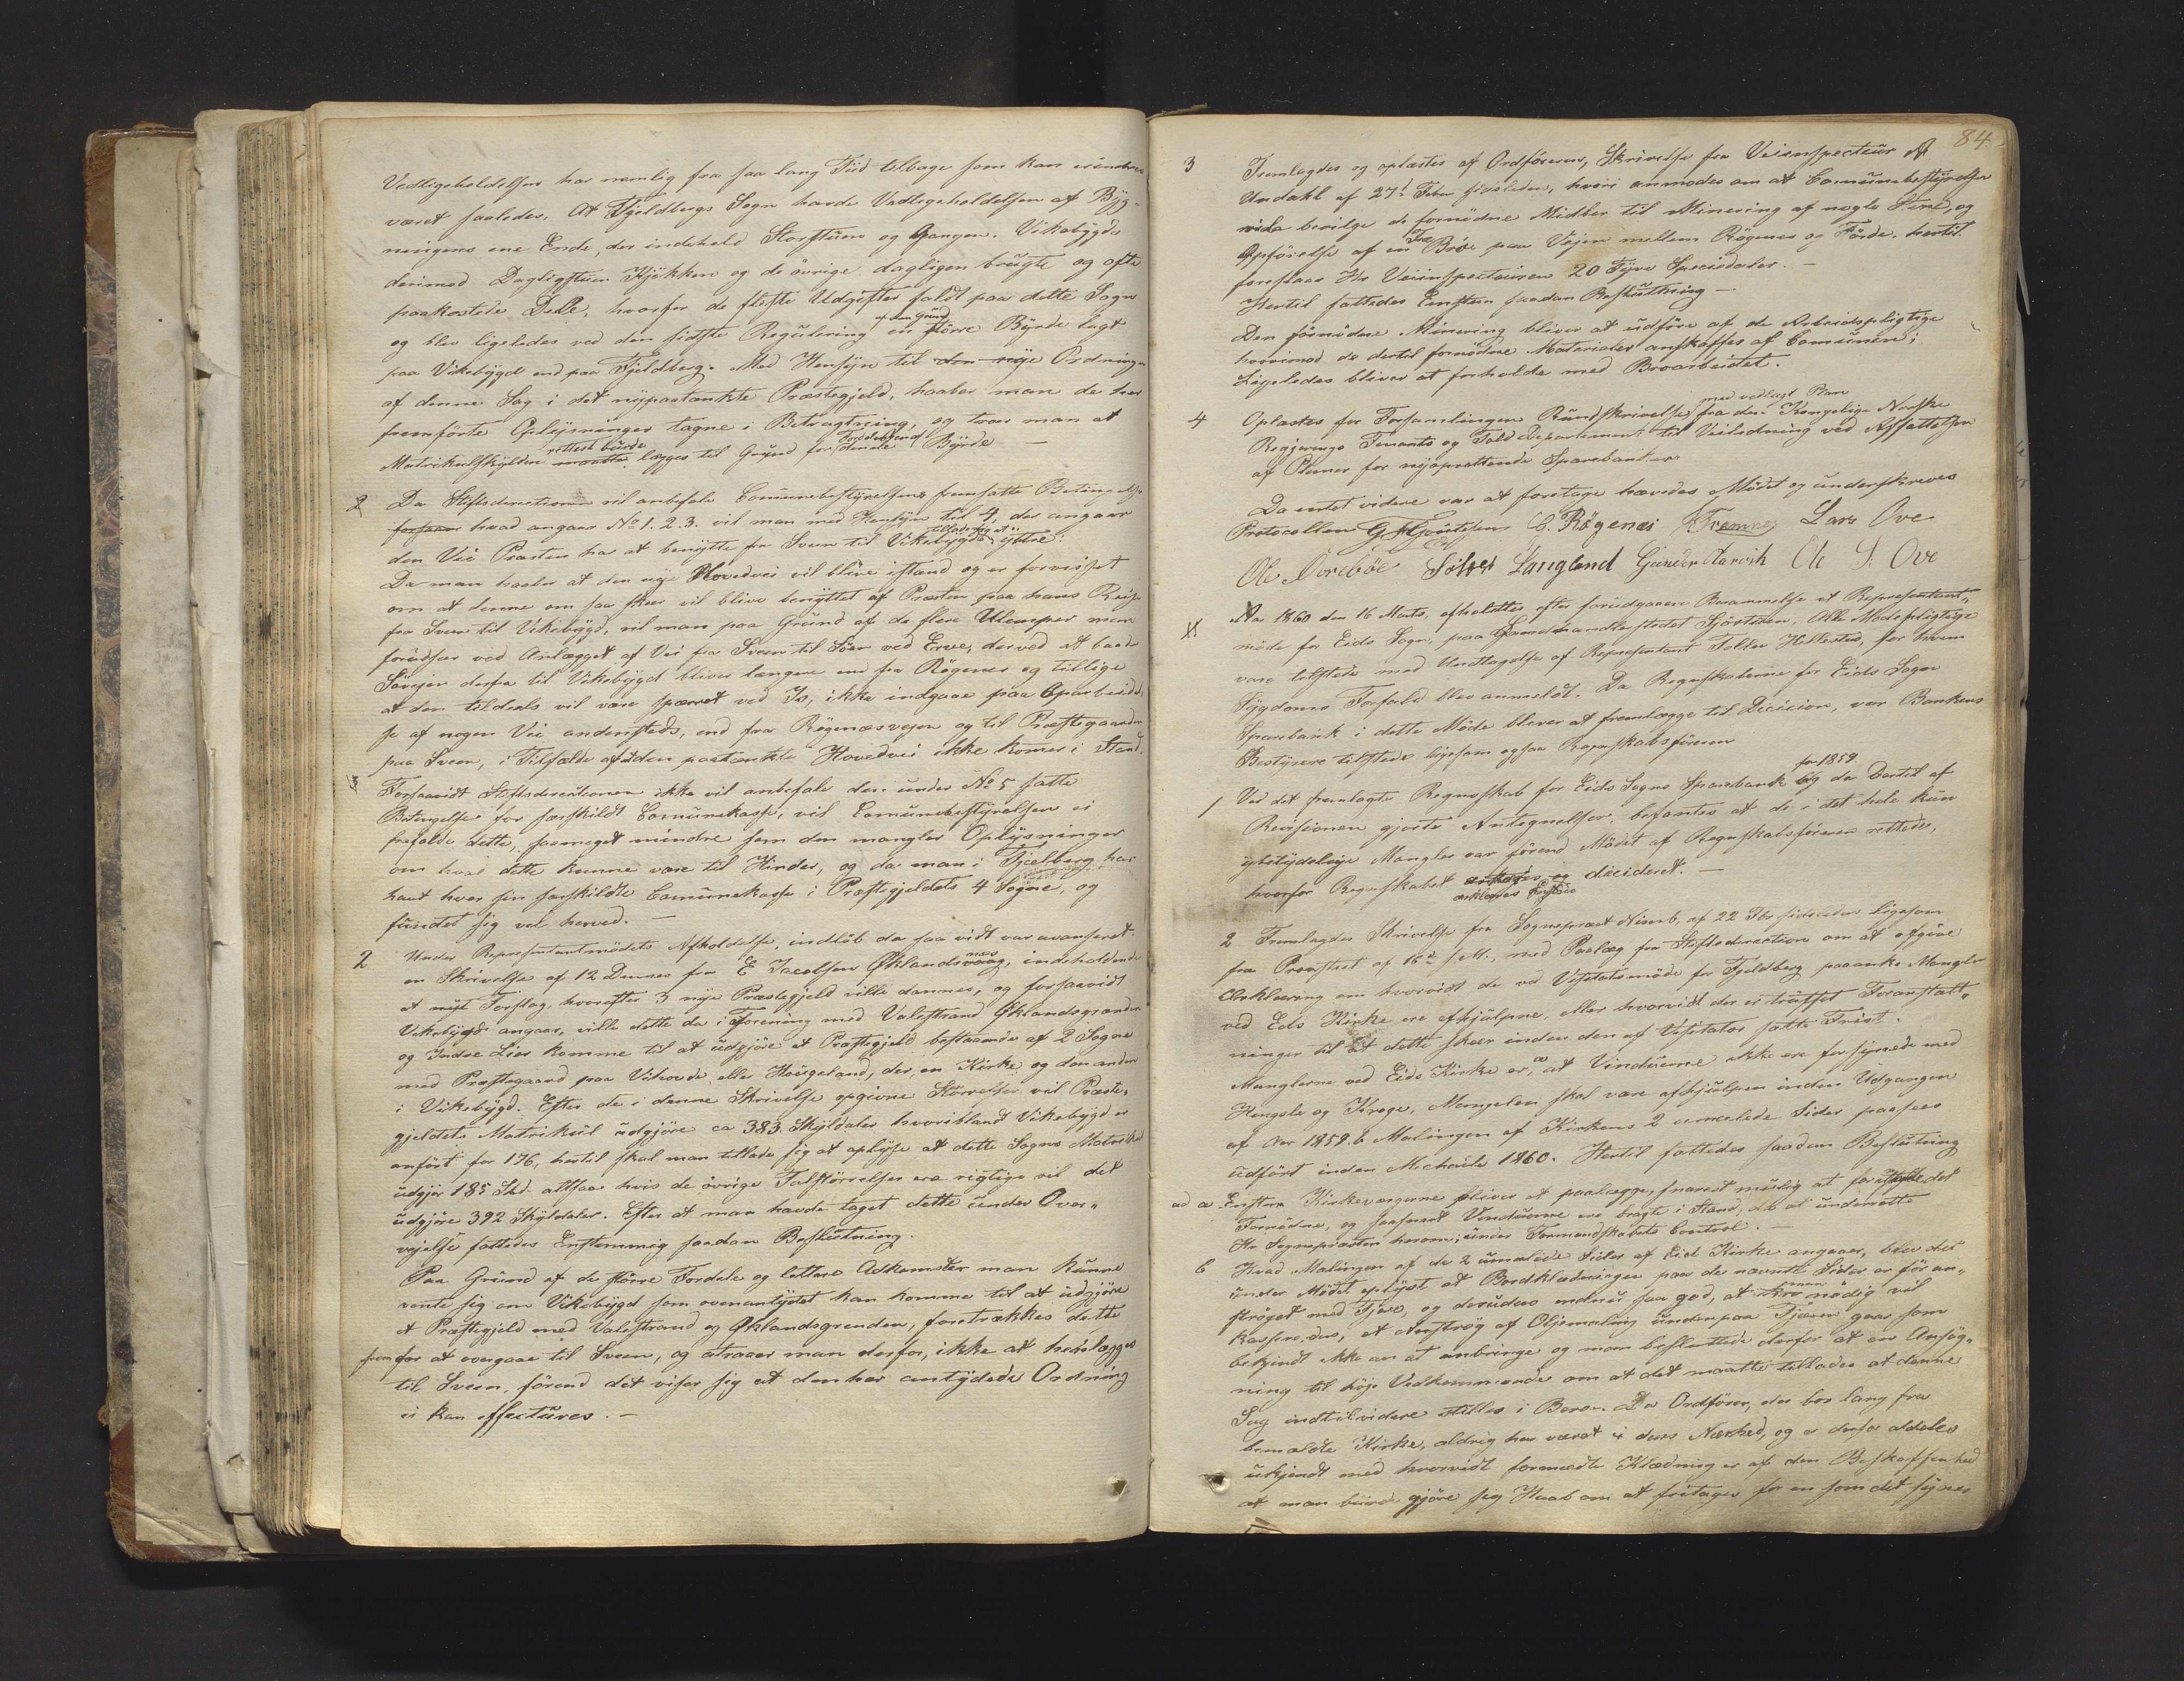 Vedligeholdelsen har nemlig fra saa lang Tiid tilbage som kan erindres
været saaledes, at Fjeldbergs Sogn havde Vedligeholdelsen af Byg-
ningens ene Ende, der indeholdt Storstuen og Gangen. Vikebygds
derimod Dagligstuen Kjøkken og de øvrige dagligen brugte og ofte
paakostede Dele, hvorfor de fleste Udgifter faldt paa dette Sogn
og blev ligeledes ved den sidste Regulering af den Grund en større Byrde lagt
paa Vikebygd end paa Fjeldberg. Med Hensyn til den nye Ordning
af denne Sag i det nypaatænkte Præstegjeld, haaber man de her
fremførte Oplysninger tagne i Betragtning, og troer man at
Matrikulskylden rettest burde lægges til Grund for denne Byrde —
2 Da Stiftsdirectionen vil anbefale Comunebestyrelsens fremsatte Betingelse
hvad angaar No 1. 2. 3. vil man med Hensyn til 4, der angaaer
den Vei Præsten har at benytte fra Sveen til Vikebygd yttre:
Da man haaber at den nye Hovedvei vil blive istand og er forvisset
om at denne om saa skeer vil blive benyttet af Præsten paa hans Reise
fra Sveen til Vikebygd, vil man paa Grund af de flere Ulemper man
forudseer ved Anlægget af Vei fra Sveen til Søen ved Erve, derved at baade
Søveien derfra til Vikebygd bliver længere end fra Røgenes og tillige
at den tildeels vil være spærret ved Is, ikke indgaae paa Oparbeidel-
se af nogen Vei andensteds, end fra Røgenæsvejen og til Præstegaarden
paa Sveen, i Tilfælde af den paatænkte Hovedvei ikke kommer i Stand.
3 Forsaavidt Stiftsdirectionen ikke vil anbefale den under No 5 satte
Betingelse for særskildt Comunekasse, vil Comunebestyrelsen ei
frafalde dette, saameget mindre som den mangler Oplysninger
om hvad dette kunne være til Hinder, og da man i Fjelberg har
havt hver sin særskildte Comunekasse i Præstegjeldets 4 Sogne, og
fundet sig vel herved. —
2 Under Repræsentantmødets Afholdelse, indløb da saa vidt var avanseret
en Skrivelse af 12 Dennes fra E Jacobsen Øklandsvaag, indeholdende
et nyt Forslag, hvorefter 3 nye Præstegjeld ville dannes, og forsaavidt
Vikebygd angaar, ville dette da i Forening med Valestrand Øklandsgrenden
og Indre Lier komme til at udgjøre et Præstegjeld bestaaende af 2 Sogne
med Præstegaard paa Vihovde eller Hougeland, der en Kirke og den anden
i Vikebygd. Efter de i denne Skrivelse opgivne Størrelser vil Præste-
gjeldets Matrikul udgjøre ca 383 Skyldaler hvoriblandt Vikebygd er
anført for 176, hertil skal man tillade sig at oplyse at dette Sogns Matrikul
udgjør 185 Skd altsaa hvis de øvrige Talstørrelser ere rigtige vil det
udgjøre 392 Skyldaler. Efter at man havde taget dette under Over-
vejelse fattedes Enstemmig saadan Beslutning.
Paa Grund af de større Fordele og lettere Adkomster man kunne
vente sig om Vikebygd som ovenantydet kan komme til at udgjøre
et Præstegjeld med Valestrand og Øklandsgrenden, foretrækkes dette
frem for at overgaae til Sveen, og attraaer man derfor, ikke at henlægges
til Sveen, førend det viser sig at den her antydede Ordning
ei kan effectueres. —
84
3 Fremlagdes og oplæstes af Ordføreren, Skrivelse fra Veiinspecteur A
Undahl af 27de Febr sidstleden, hvori anmodes om at Comunebestyrelsen
vilde bevilge de fornødne Midler til Minering af nogle Stene, og
Opførelse af en Træ Broe paa Vejen mellem Røgenes og Førde. hertil
foreslaaer Hr Veiinspecteuren 20 Tyve Speciedaler. —
Hertil fattedes Enstem saadan Beslutning —
Den fornødne Minering bliver at udføre af de Arbeidspligtige
hvorimod de dertil fornødne Materialer anskaffes af Comunen;
Ligeledes bliver at forholde med Broarbeidet.
4 Oplæstes for Forsamlingen Rundskrivelse med vedlagt Plan fra den Kongelige Norske
Regjerings Finants og Told Departement til Veiledning ved Affattelsen
af Planer for nyoprettende Sparebanker
Da intet videre var at foretage hævedes Mødet og underskreves
Protocollen G. Gjøntesen C. Røgenes Tremnes Lars Ove
Ole Dorebøe Sølfest Langland Gunder Harvik Ole S. Ove
Aar 1860 den 16 Marts, afholdtes efter forudgaaen Berammelse et Repræsentant-
møde for Eids Sogn, paa Handelstedet Sjørstien. Alle Mødepligtige
vare tilstede med Undtagelse af Repræsentant Tollev Hellestad, for hvem
Sygdoms Forfald blev anmeldt. Da Regnskaberne for Eids Sogns
Sparebank i dette Møde bliver at fremlægge til Decision, var Bankens
Bestyrere tilstede ligesom ogsaa Regnskabsføreren
1 Ved det fremlagte Regnskab for Eids Sogns Sparebank for 1859 og de Dertil af
Revisionen gjorte Antegnelser, befantes at de i det hele kun
ubetydelige Mangler var førend Mødet af Regnskabsføreren rettede,
hvorfor Regnskabet ansees og decideret. —
2 Fremlagdes Skrivelse fra Sognepræst Nimb, af 22 Fbr sidstleden ligesom
fra Provstiet af 16de s. M., med Paalæg fra Stiftsdirection om at afgive
Erklæring om hvorvidt de ved Visitatsmøde for Fjeldberg paaankede Mangler
ved Eids Kirke ere afhjulpne, eller hvorvidt der er truffet Foranstalt-
ninger til at dette skeer inden den af Visitator satte Frist.
Manglerne ved Eids Kirke er, a at Vinduerne ikke ere forsynede med
Hengsle og Kroge, Mangelen skal være afhjulpen inden Udgangen
af Aar 1859. b Malingen af Kirkens 2 umalede Sider paasees
udført inden Michaeli 1860. Hertil fattedes saadan Beslutning
ad a Enstem Kirkeværgerne bliver at paalægge, snarest mulig at foranstalte det
Fornødne, og saasnart Vinduerne ere bragte i Stand, da at underrette
Hr Sognepræsten herom; under Formandskabets Control. —
b Hvad Malingen af de 2 umalede Sider af Eid Kirke angaaer, blev det
under Mødet oplyst at Bordklædningen paa de nævnte Sider er før an-
strøget med Tjære, og desuden endnu saa god, at man nødig vil
kassere den, et Anstrøg af Oljemaling undenpaa Tjæren gaar som
bekjendt ikke an at anbringe og man besluttede derfor at en Ansøg-
ning til høje Vedkommende om at det maatte tillades at denne
Sag indtil videre stilles i Bero. Da Ordfører, der bor lang fra
bemældte Kirke, aldrig har været i dens Nærhed, og er derfor aldeles
ukjendt med hvorvidt formældte Klædning er af den Beskaffenhed
at man burde gjøre sig Haab om at fritages for en som det synes